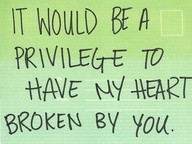 IT WOULD BE A
PRIVILEGE TO
HAVE MY HEART
BROKEN BY YOU.